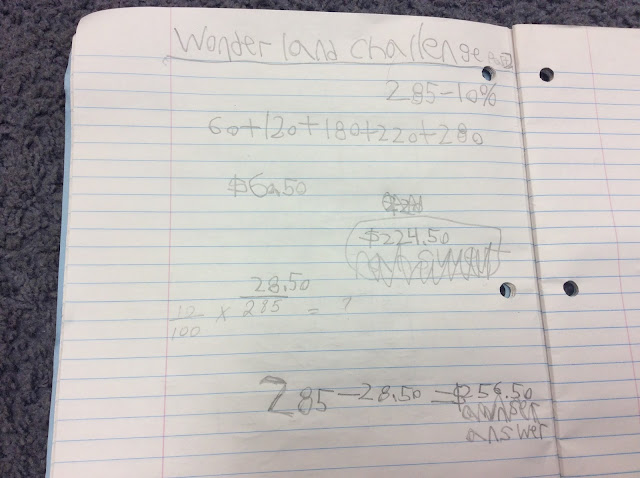 Wonder land challenge
285-10%
60+120+180+220+280
$60.50
$224.50
28.50
10/100 x 285 = ?
285-28.50=$256.50
awnser
answer